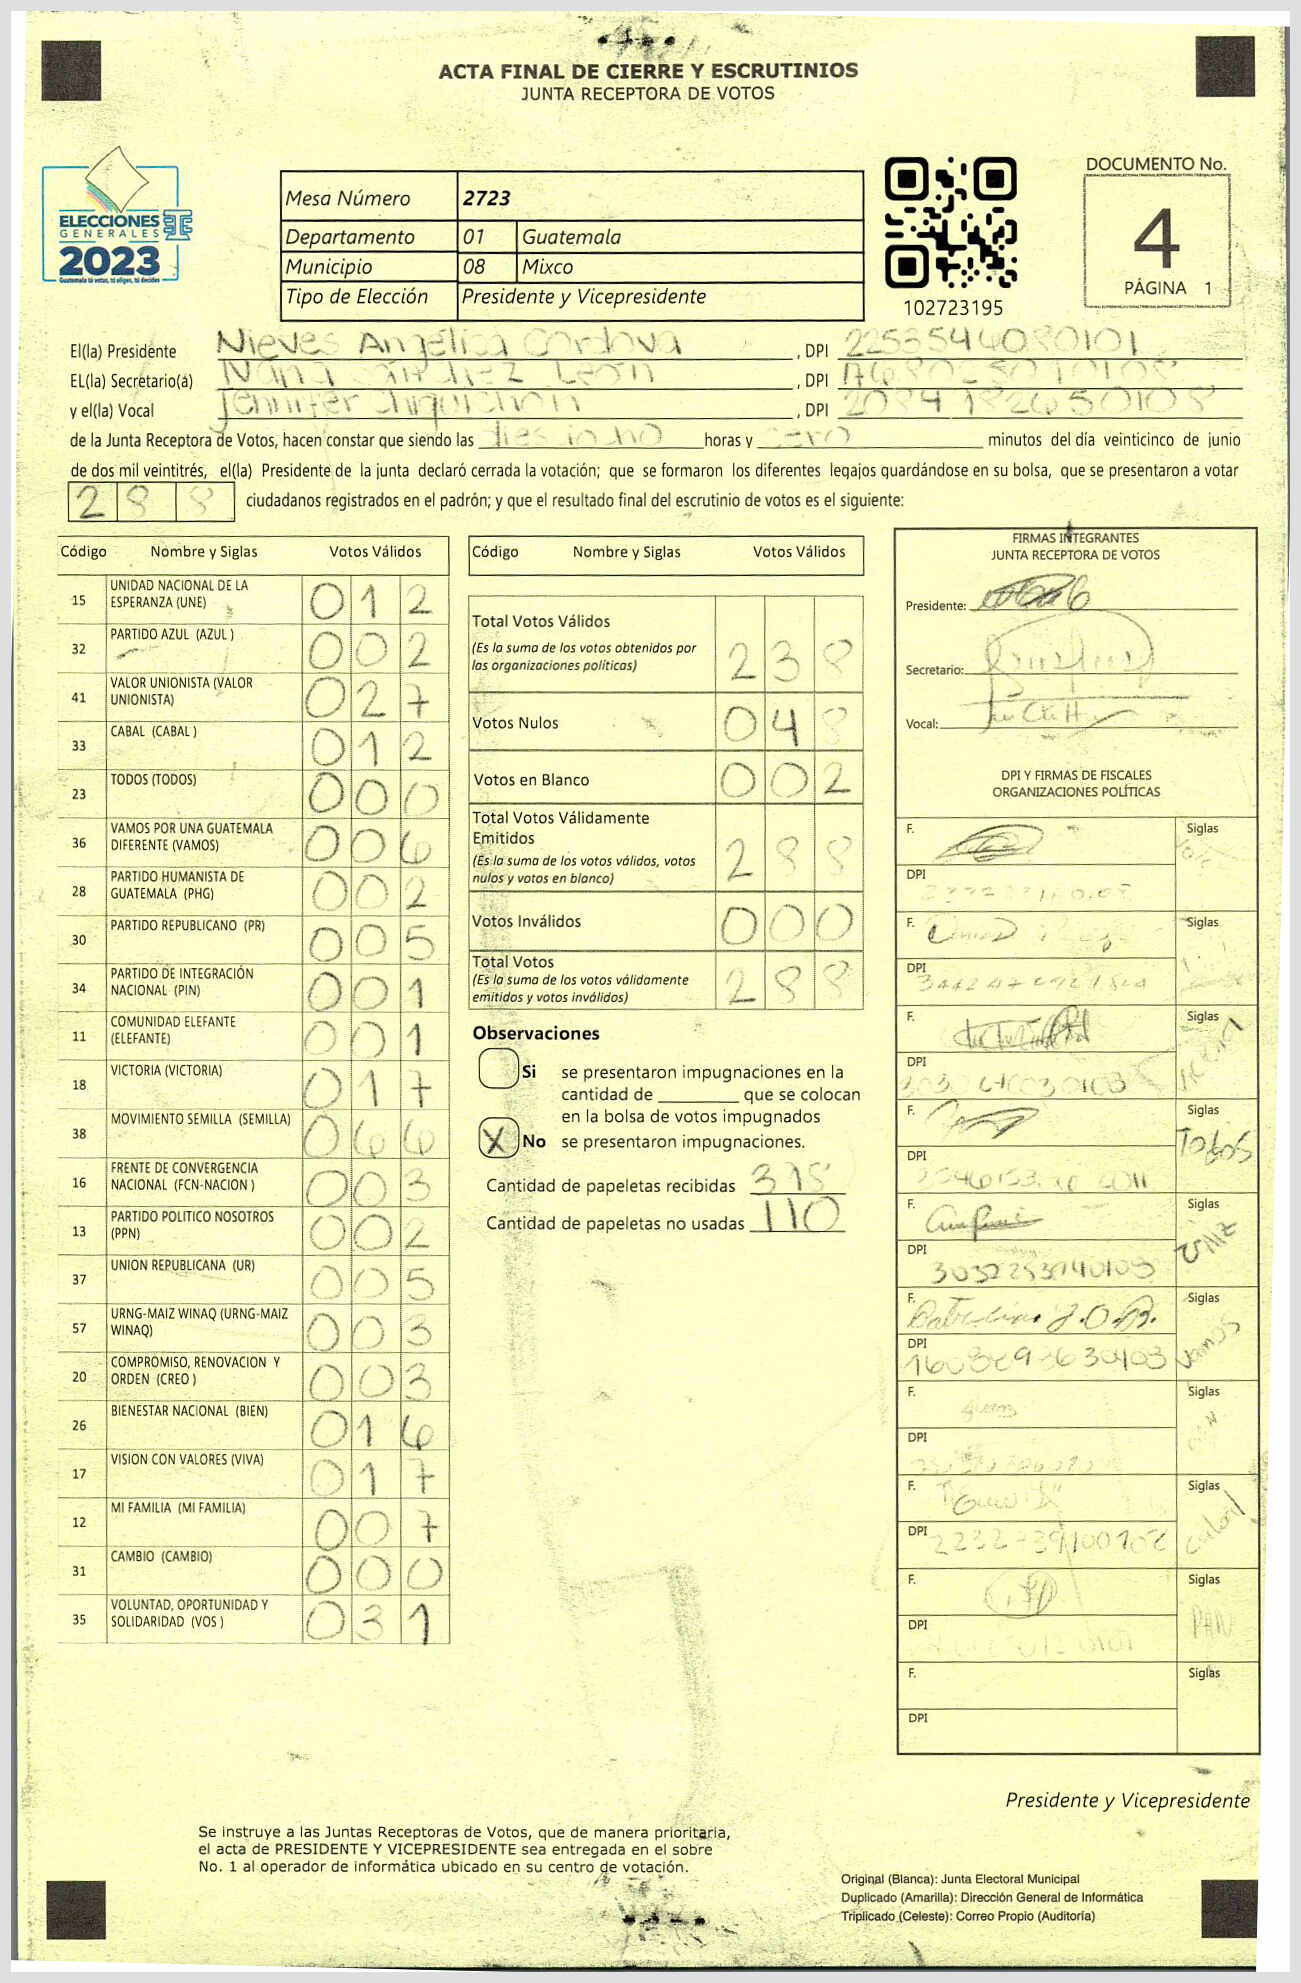 ACTA FINAL DE CIERRE Y ESCRUTINIOS
JUNTA RECEPTORA DE VOTOS
ELECCIONES
GENERALES
2023
Guatemala tú votas, tú eliges, tú decides
Mesa Número 2723
Departamento 01 Guatemala
Municipio 08 Mixco
Tipo de Elección Presidente y Vicepresidente
102723195
DOCUMENTO No.
4
PÁGINA 1
El(la) Presidente Nieves Angélica Córdova , DPI 2253544080101
EL(la) Secretario(a) León , DPI
y el(la) Vocal Jennifer , DPI 2084182650108
de la Junta Receptora de Votos, hacen constar que siendo las horas y cero minutos del día veinticinco de junio
de dos mil veintitrés, el(la) Presidente de la junta declaró cerrada la votación; que se formaron los diferentes legajos quardándose en su bolsa, que se presentaron a votar
288 ciudadanos registrados en el padrón; y que el resultado final del escrutinio de votos es el siguiente:
Código Nombre y Siglas Votos Válidos
15 UNIDAD NACIONAL DE LA ESPERANZA (UNE) 012
32 PARTIDO AZUL (AZUL ) 002
41 VALOR UNIONISTA (VALOR UNIONISTA) 027
33 CABAL (CABAL ) 012
23 TODOS (TODOS) 000
36 VAMOS POR UNA GUATEMALA DIFERENTE (VAMOS) 006
28 PARTIDO HUMANISTA DE GUATEMALA (PHG) 002
30 PARTIDO REPUBLICANO (PR) 005
34 PARTIDO DE INTEGRACIÓN NACIONAL (PIN) 001
11 COMUNIDAD ELEFANTE (ELEFANTE) 001
18 VICTORIA (VICTORIA) 017
38 MOVIMIENTO SEMILLA (SEMILLA) 066
16 FRENTE DE CONVERGENCIA NACIONAL (FCN-NACION ) 003
13 PARTIDO POLITICO NOSOTROS (PPN) 002
37 UNION REPUBLICANA (UR) 005
57 URNG-MAIZ WINAQ (URNG-MAIZ WINAQ) 003
20 COMPROMISO, RENOVACION Y ORDEN (CREO ) 003
26 BIENESTAR NACIONAL (BIEN) 016
17 VISION CON VALORES (VIVA) 017
12 MI FAMILIA (MI FAMILIA) 007
31 CAMBIO (CAMBIO) 000
35 VOLUNTAD, OPORTUNIDAD Y SOLIDARIDAD (VOS ) 031
Código Nombre y Siglas Votos Válidos
Total Votos Válidos 238
(Es la suma de los votos obtenidos por
las organizaciones políticas)
Votos Nulos 048
Votos en Blanco 002
Total Votos Válidamente
Emitidos 288
(Es la suma de los votos válidos, votos
nulos y votos en blanco)
Votos Inválidos 000
Total Votos 288
(Es la suma de los votos válidamente
emitidos y votos inválidos)
Observaciones
Si se presentaron impugnaciones en la
cantidad de ________ que se colocan
en la bolsa de votos impugnados
X No se presentaron impugnaciones.
Cantidad de papeletas recibidas
Cantidad de papeletas no usadas 110
FIRMAS INTEGRANTES
JUNTA RECEPTORA DE VOTOS
Presidente:
Secretario:
Vocal:
DPI Y FIRMAS DE FISCALES
ORGANIZACIONES POLÍTICAS
F. Siglas
DPI
F. Siglas
DPI
F. Siglas
DPI
F. Siglas Todos
DPI
F. Siglas
DPI
F. Siglas Vamos
DPI
F. Siglas
DPI
F. Siglas
DPI
F. Siglas PAN
DPI
F. Siglas
DPI
Presidente y Vicepresidente
Se instruye a las Juntas Receptoras de Votos, que de manera prioritaria,
el acta de PRESIDENTE Y VICEPRESIDENTE sea entregada en el sobre
No. 1 al operador de informática ubicado en su centro de votación.
Original (Blanca): Junta Electoral Municipal
Duplicado (Amarilla): Dirección General de Informática
Triplicado (Celeste): Correo Propio (Auditoría)